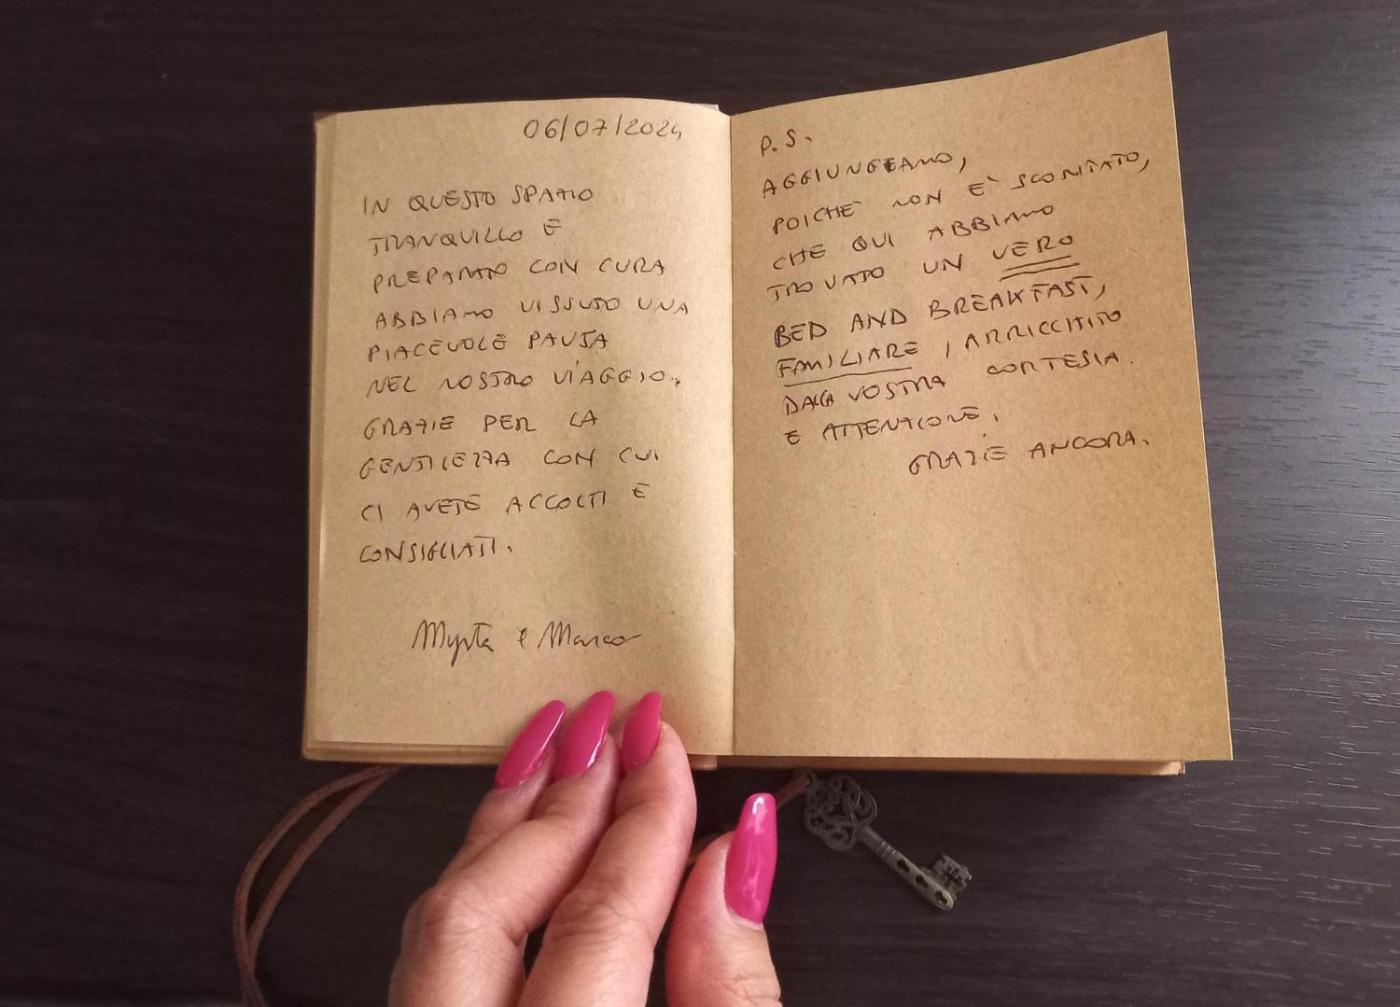 06/07/2024
IN QUESTO SPAZIO
TRANQUILLO E
PREPARATO CON CURA
ABBIAMO VISSUTO UNA
PIACEVOLE PAUSA
NEL NOSTRO VIAGGIO..
GRAZIE PER LA
GENTILEZZA CON CUI
CI AVETE ACCOLTI E
CONSIGLIATI.
Myrta e Marco
P.S.
AGGIUNGIAMO,
POICHÈ NON E' SCONTATO,
CHE QUI ABBIAMO
TROVATO UN VERO
BED AND BREAKFAST,
FAMILIARE, ARRICCHITO
DALLA VOSTRA CORTESIA.
E ATTENZIONE.
GRAZIE ANCORA.